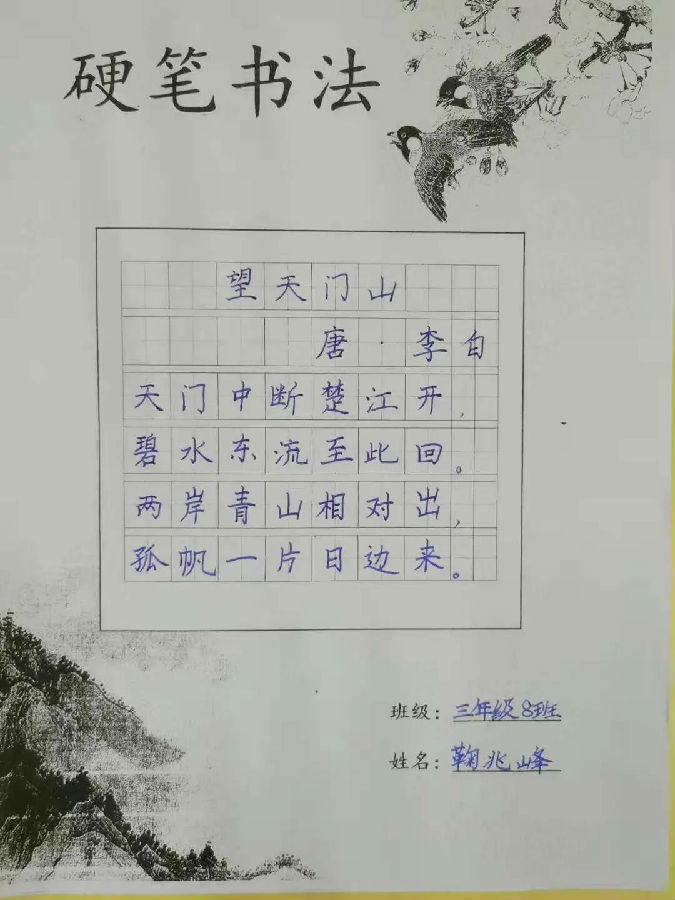 硬笔书法
望天门山
唐·李白
天门中断楚江开,
碧水东流至此回。
两岸青山相对出,
孤帆一片日边来。
班级：三年级8班
姓名：鞠兆峰